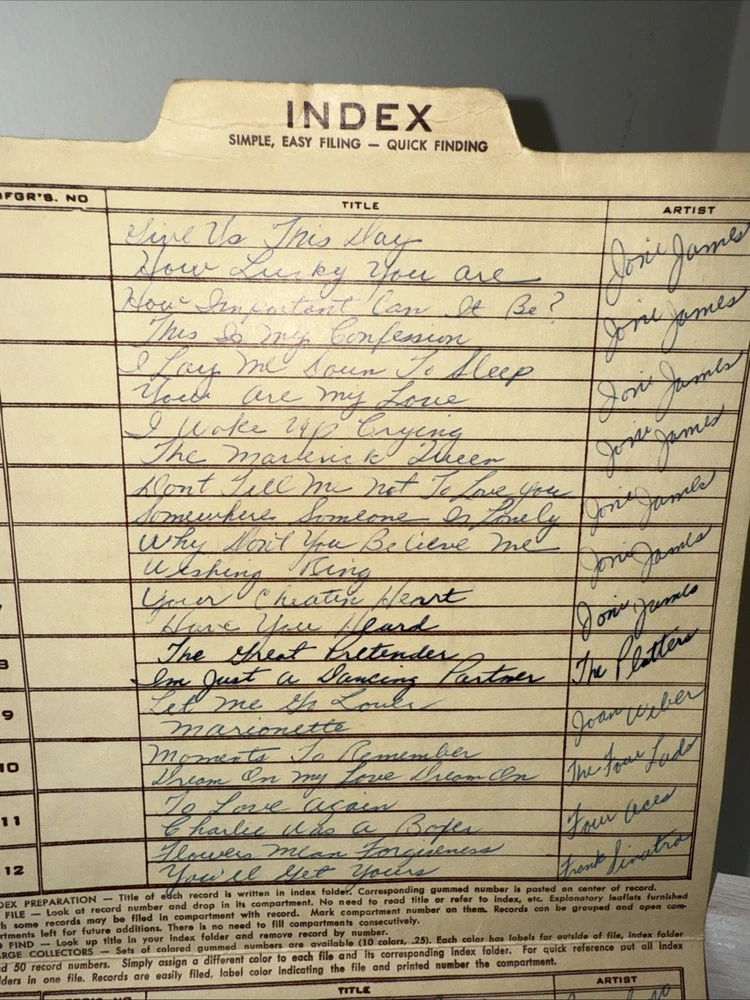 INDEX
SIMPLE, EASY FILING — QUICK FINDING
FGR'S. NO TITLE ARTIST
Give Us This Day
How Lucky You are Joni James
How Important Can It Be?
This Is My Confession Joni James
I Lay Me Down To Sleep
You are My Love Joni James
I Woke Up Crying
The Maverick Queen Joni James
Dont Tell Me Not To Love You
Somewhere Someone Is Lonely Joni James
Why Don't You Believe Me
Wishing Ring Joni James
Your Cheatin Heart
7 Have You Heard Joni James
The Great Pretender
8 Im Just a Dancing Partner The Platters
Let Me Go Lover
9 Marionette Joan Weber
Moments To Remember
10 Dream On My Love Dream On The Four Lads
To Love again
11 Charlie Was a Boxer Four Aces
Flowers Mean Forgiveness
12 You'll Get Yours Frank Sinatra
DEX PREPARATION — Title of each record is written in index folder. Corresponding gummed number is pasted on center of record.
FILE — Look at record number and drop in its compartment. No need to read title or refer to index, etc. Explanatory leaflets furnished
h some records may be filed in compartment with record. Mark compartment number on them. Records can be grouped and open com-
rtments left for future additions. There is no need to fill compartments consecutively.
FIND — Look up title in your Index folder and remove record by number.
ARGE COLLECTORS — Sets of colored gummed numbers are available (10 colors, .25). Each color has labels for outside of file, index folder
d 50 record numbers. Simply assign a different color to each file and its corresponding index folder. For quick reference put all Index
ders in one file. Records are easily filed, label color indicating the file and printed number the compartment.
TITLE ARTIST